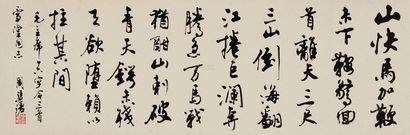 山快馬加鞭
未下鞍驚回
首離天三尺
三山倒海翻
江捲巨瀾奔
騰急萬馬戰
猶酣山刺破
青天鍔未殘
天欲墮賴以
拄其間
毛主席十六字令三首
雪堂同志